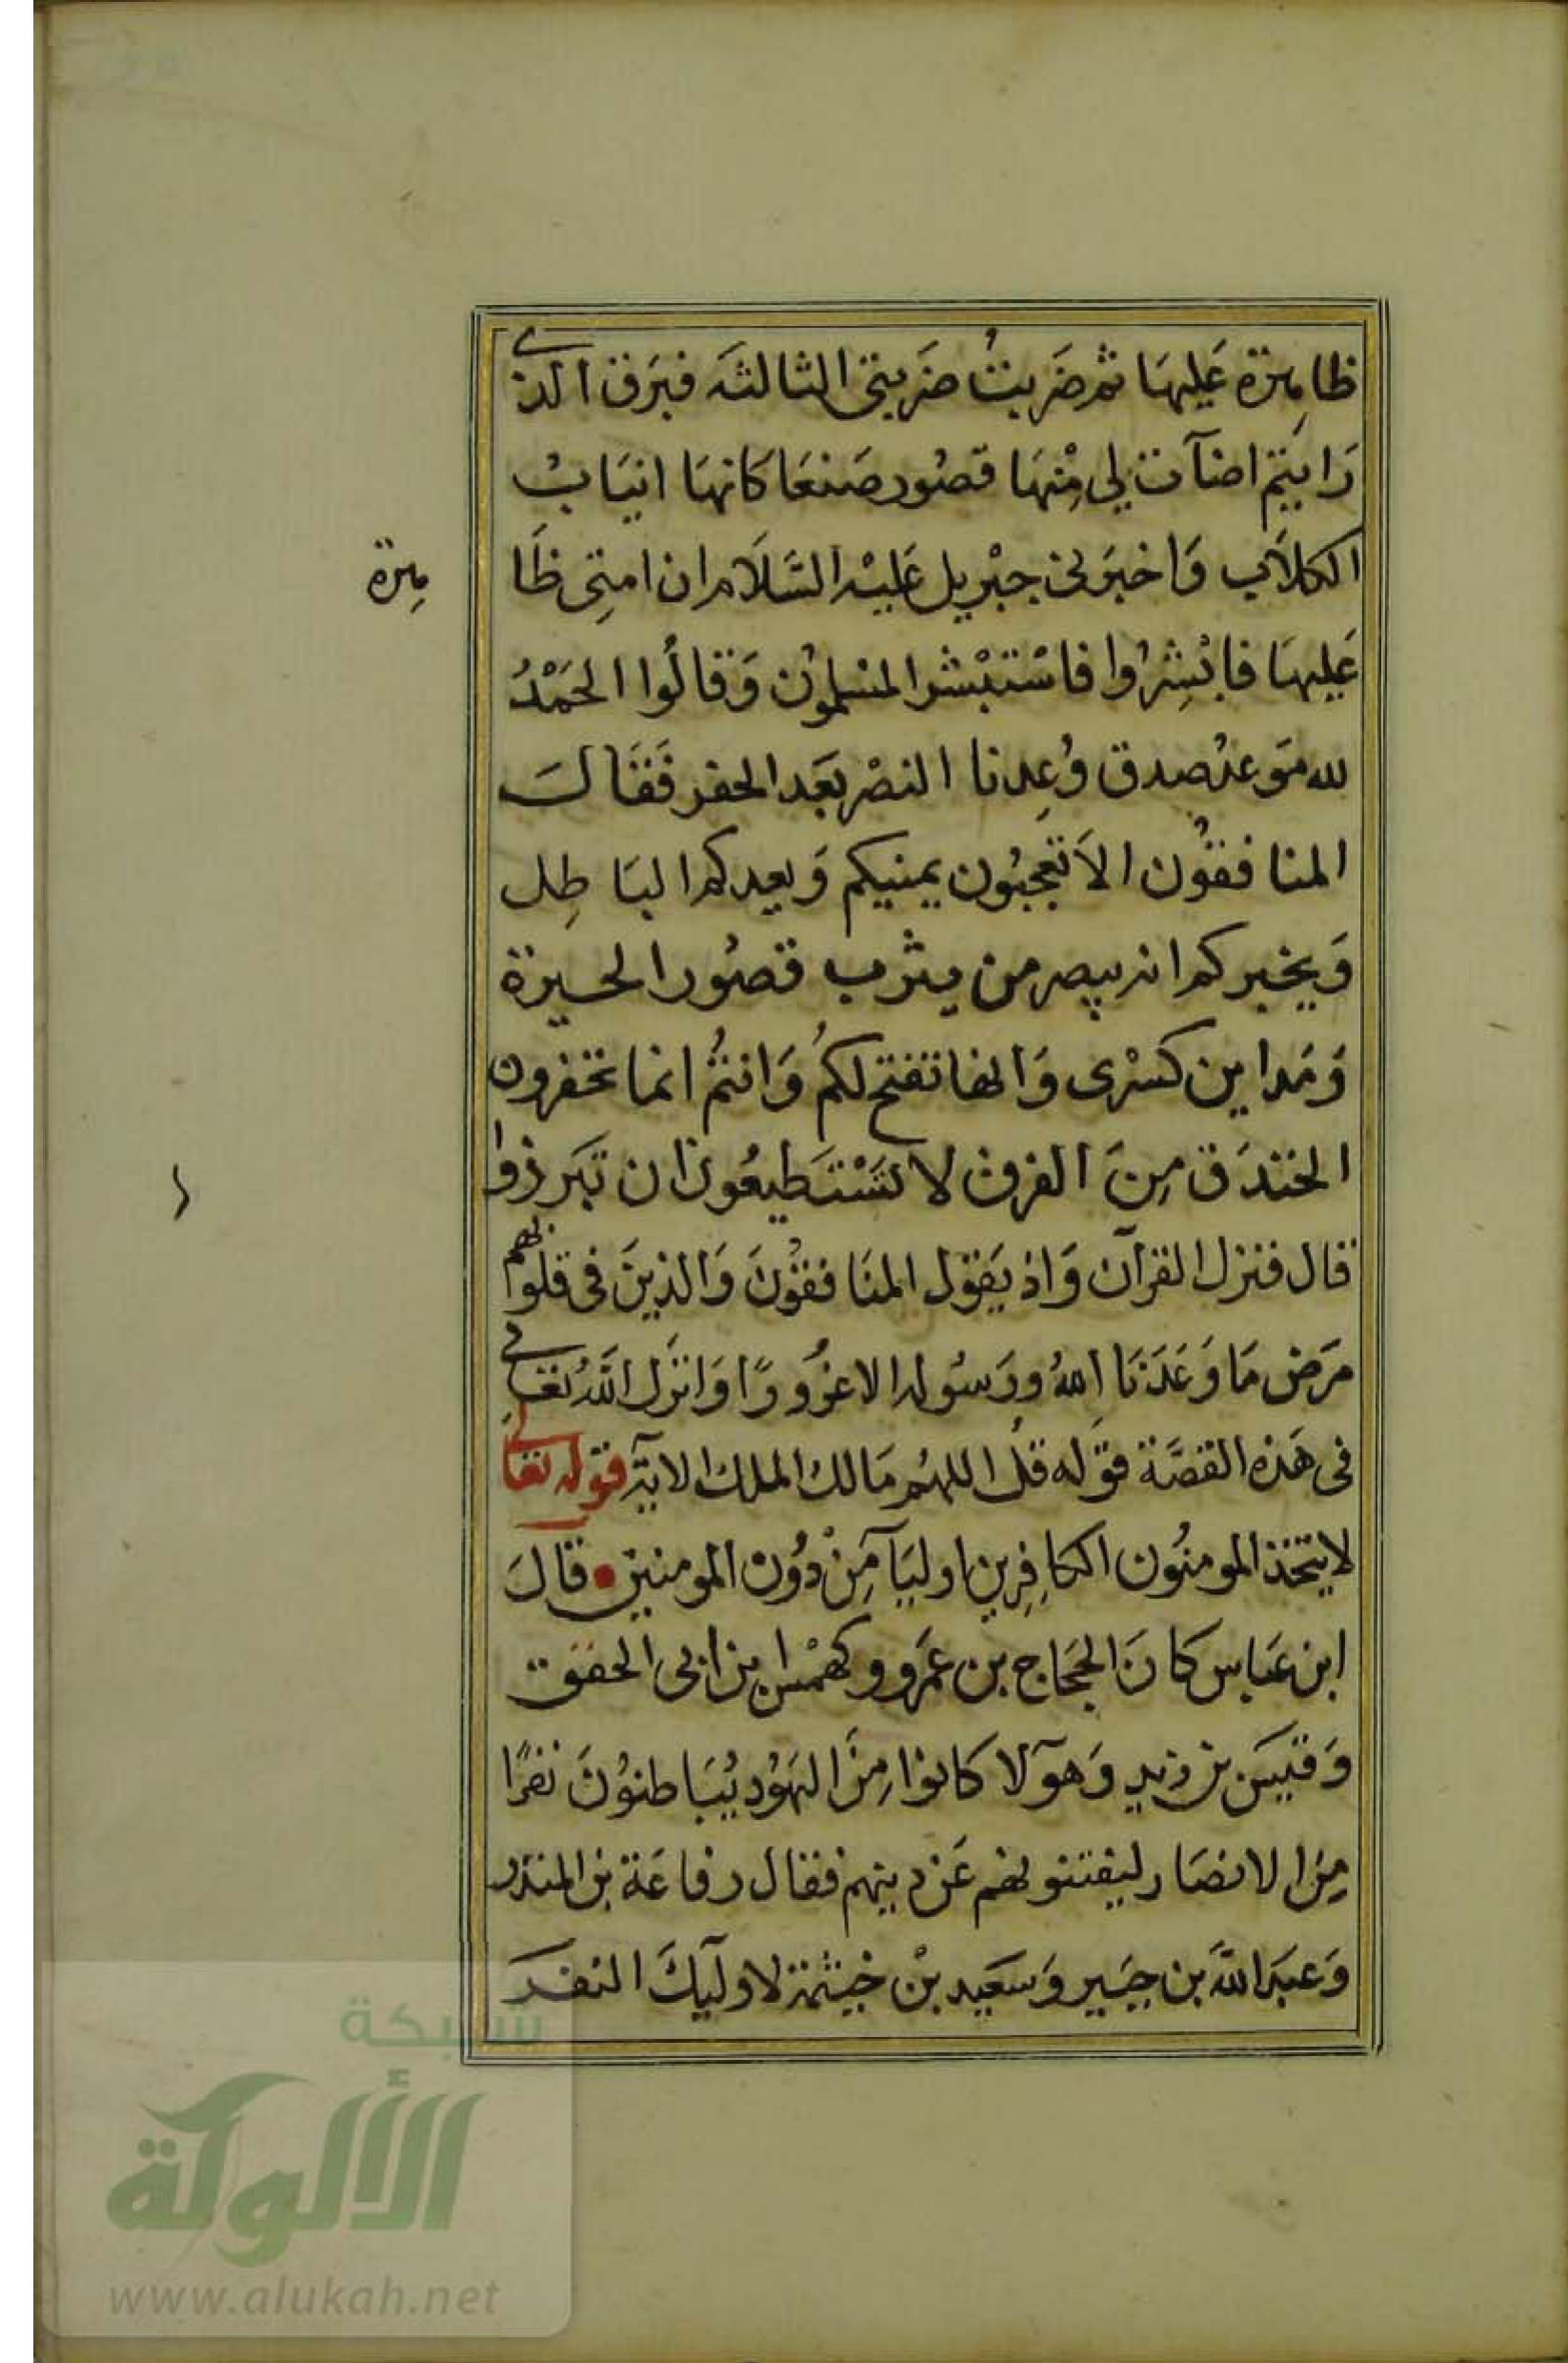 ظاهرة عَليهَا ثم ضَربتُ ضَربتى الثالثَه فبَرق الذى
رَايتم اضآت لي مِنْهَا قصُور صَنعَا كَانهَا انيَابُ
الكلاَب وَاخبَرنى جبْريل عَليْه السَّلاَم ان امتِى ظَا
هرة
عَليهَا فابْشِرُوا فاسْتبْشر المسلموُن وَقالُوا الحَمْدُ
لله مَوعدُ صدق وُعِدنا النصْر بَعَد الحفر فَقَالَ
المنافقُون الاَ تعجبُون يمنيكم وَيعدكم البَاطِل
وَيخبركم انه يبصر من يثرب قصُور الحيرة
وَمَداين كسْرى وَانها تفتح لكمُ وَانتمُ انما تحفرون
الخندَق مِنَ الفرق لا تَسْتَطيعُون ان تبَرزوا
قال فنزل القرآن وَاذ يَقول المنَافقوُنَ وَالذينَ فى قلوبهم
مرَض مَا وَعَدَنَا اللهُ وِرَسُوله الا غرُورًا وَانزَل اللهُ تعَالى
فى هَذه القصَّة قوَله قلُ اللهُم مَالك الملك الايَة قوله تعَالى
لا يتخذ المومنُون الكافِرِين اوليَآ مِنْ دوُن المومنين قالَ
ابن عَباس كانَ الحجَاج بن عَمَرو وكهمْس بن ابى الحقيق
وَقيَس بن زيد وَهوَلآ كانوا مِنَ اليَهوُد يُبَاطنوُنَ نفرًا
مِن الانصَار ليفتنونهم عَن دينهم فقال رفاعَة بن المنذر
وَعبَد اللهَ بن جبَير وَسَعَيد بنْ خيثمة لاولَيكَ النفَر
شبكة
الألوكة
www.alukah.net